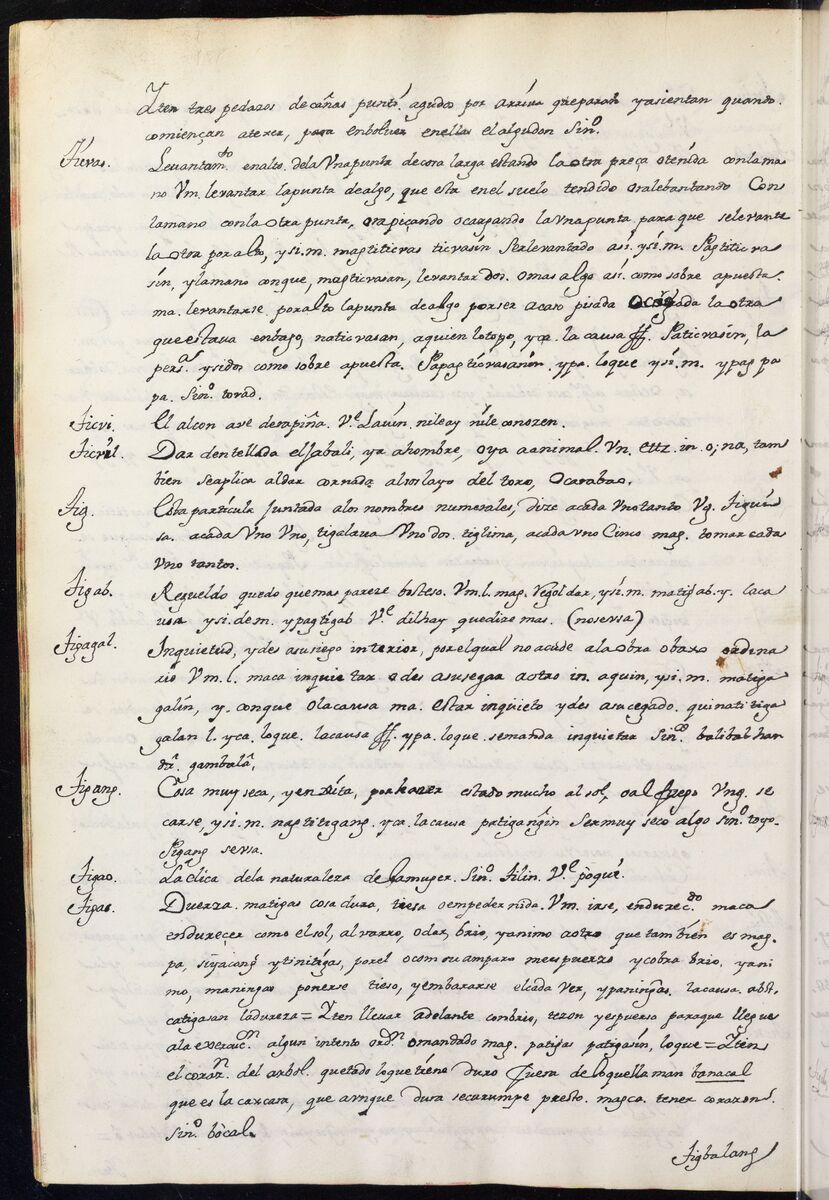 Yten tres pedazos de cañas punt.s agudas por arriva que paran y asientan quando
comiençan a texer, para enboluer en ellas el algudon Sin.o
Ticras. Levantam.to en alto de la Vna punta de cosa larga estando la otra preça o tenida con la ma
no Vm. levantar la punta de algo, que esta en el suelo tendido o alebantando Con
la mano con la otra punta, o apiçando o cargando la vna punta para que se levante
la otra por alto, y si. m. magtiticras ticrasin Ser levantado asi. y si. m. Pagtiticra
sin, y la mano con que, magticrasan, levantar dos. o mas algo asi. como sobre apuesta.
ma. levantarse por alto la punta de algo por ser acaso pisada o cargada la otra
que estava en bajo, naticrasan, a quien lo topo, y ca. la causa ff. Paticrasin, la
pers.a y si dos como sobre apuesta. Papagticrasanon. y pa. lo que y si. m. y pag pa
pa. Sin.o torad.
Ticvi. El alcon ave de rapiña. V.e Lauin. nileay nile conozen.
Ticvil. Dar dentellada el Jabali, ya a hombre, o ya a animal. Vn. ettz. in. o, na, tam
bien se aplica al dar cornada al soslayo del toro, o carabao.
Tig. Esta particula Juntada a los nombres numerales, dize a cada vno tanto Vg. Tiguis
sa. a cada Vno Vno, tigalaua Vno dos. tiglima, a cada vno Cinco mag. tomar cada
vno tantos.
Tigab. Regueldo quedo que mas pareze bosteso. Vm. l. mag. Regoldar, y si. m. matigab. y. la ca
usa y si. de m. y pagtigab V.e dilhay que dize mas. (no se vsa)
Tigagal. Inquietud, y desasusiego interior, por el qual no acude a la obra obaxo ordina
rio Vm. l. maca inquietar o desasusegar a otro in. a quin, y si. m. matiga
galin, y. con que o la causa ma. estar inquieto y desasucegado. qui natitiga
galan l. y ca. lo que. la causa ff. y pa. lo que. se manda inquietar Sin.o balibal han
dr. gambala.
Tigang. Cosa muy seca, y enxuta, por haver estado mucho al sol, o al fuego Vng. se
carse, y si. m. nagtitigang. y ca. la causa patigangin Ser muy seco algo Sin.o toyo.
Pigang se vsa.
Tigao. La clica de la naturaleza de la muger. Sin.o Tilin. V.e poqué.
Tigas. Duerza. matigas cosa dura, tiesa o empedernida. Vm. irse, endurec.do maca
endureçer como el sol, al varro, o dar, brio, y animo a otro que tambien es mag.
pa, siya cong ytinitigas, por el o com su amparo me espuerzo y cobra brio, y ani
mo, maningas ponerse tieso, y embararse el cadaver, y paningas. la causa. abst.
catigasan la dureza = Yten lleuar adelante con brio, tezon y espuerso para que llegue
a la execuc.n algun intento ord.n o mandado mag. patigas patigasin, lo que = Yten
el coraz.n del arbol. quetado lo que tiene duro fuera de lo que llaman banacal
que es la caxcara, que avnque dura se corrumpe presto. magca. tener corazon.
Sin.o bòcal.
Tigbalang